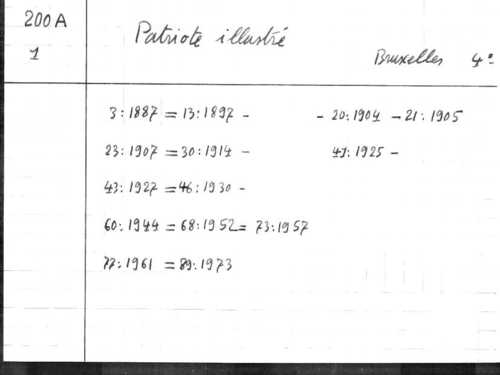 200A
1
Patriote illustré
Bruxelles 4º
3:1887 = 13:1897 - - 20:1904 - 21:1905
23:1907 = 30:1914 - 41:1925 -
43:1927 = 46:1930 -
60:1944 = 68:1952 = 73:1957
77:1961 = 89:1973